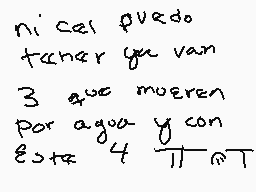 ni cel puedo
tener ya van
3 que mueren
por agua y con
Este 4